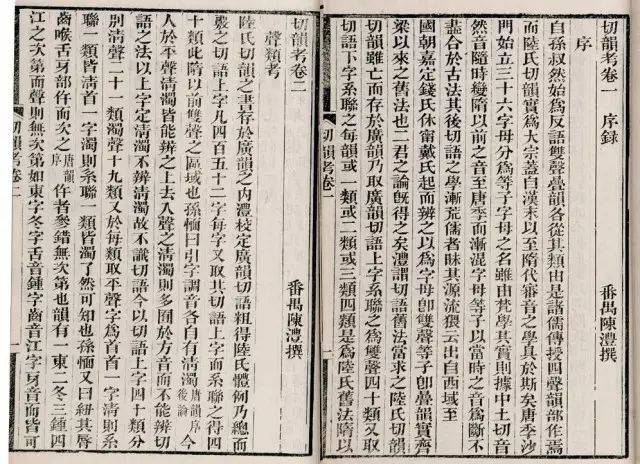 切韻考卷一　序録
番禺陳澧撰
序
自孫叔然始爲反語雙聲疊韻各從其類由是諸儒傳授四聲韻部作焉
而陸氏切韻實爲大宗蓋自漢末以至隋代審音之學具於斯矣唐季沙
門始立三十六字母分爲等子字母之名雖由梵學其實則據中土切音
然音隨時變隋以前之音至唐季而漸混字母等子以當時之音爲斷不
盡合於古法其後切語之學漸荒儒者昧其源流猥云出自西域至
國朝嘉定錢氏休甯戴氏起而辨之以爲字母卽雙聲等子卽疊韻實齊
梁以來之舊法也二君之論旣得之矣澧謂切語舊法當求之陸氏切韻
切韻雖亡而存於廣韻乃取廣韻切語上字系聯之爲雙聲四十類又取
切語下字系聯之每韻或一類或二類或三類四類是爲陸氏舊法隋以
切韻考卷一
一
切韻考卷二
番禺陳澧撰
聲類考
陸氏切韻之書存於廣韻之內澧校定廣韻切語粗得陸氏體例乃總而
覈之切語上字凡四百五十二字每字又取其切語上字而系聯之得四
十類此隋以前雙聲之區域也孫愐曰引字調音各自有淸濁唐韻序後論今
人於平聲淸濁皆能辨之上去入聲之淸濁則多囿於方音而不能辨切
語之法以上字定淸濁不辨淸濁故不識切語今以切語上字四十類分
別淸聲二十一類濁聲十九類又於每類取平聲字爲首首一字淸則系
聯一類皆淸首一字濁則系聯一類皆濁了然可知也孫愐又曰紐其脣
齒喉舌牙部仵而次之唐韻序仵者參錯無次第也韻有一東二冬三鍾四
江之次第而聲則無次第如東字冬字舌音鍾字齒音江字牙音而皆可
切韻考卷二
一